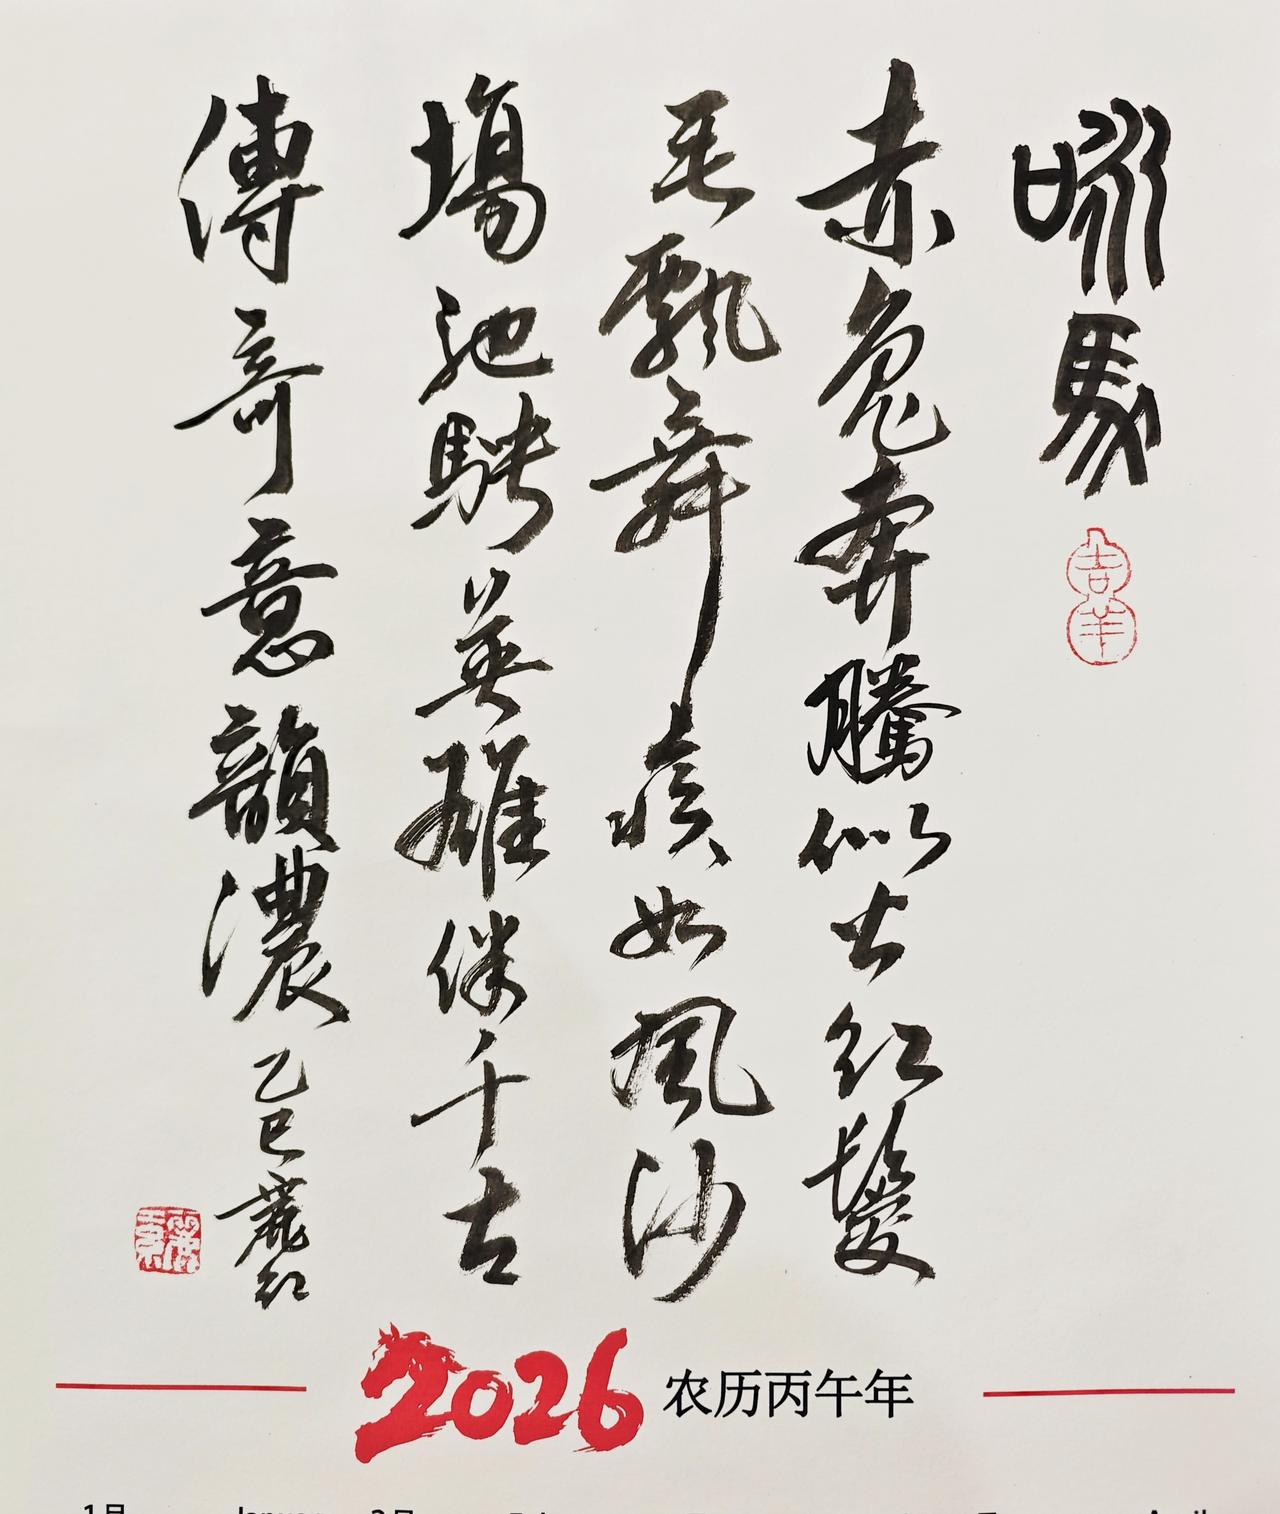 咏馬
吉羊
赤兔奔騰似火紅鬃
毛飄舞疾如風沙
場池騁英雄伴千古
傳奇意韻濃
乙巳麗紅
2026 农历丙午年
1月